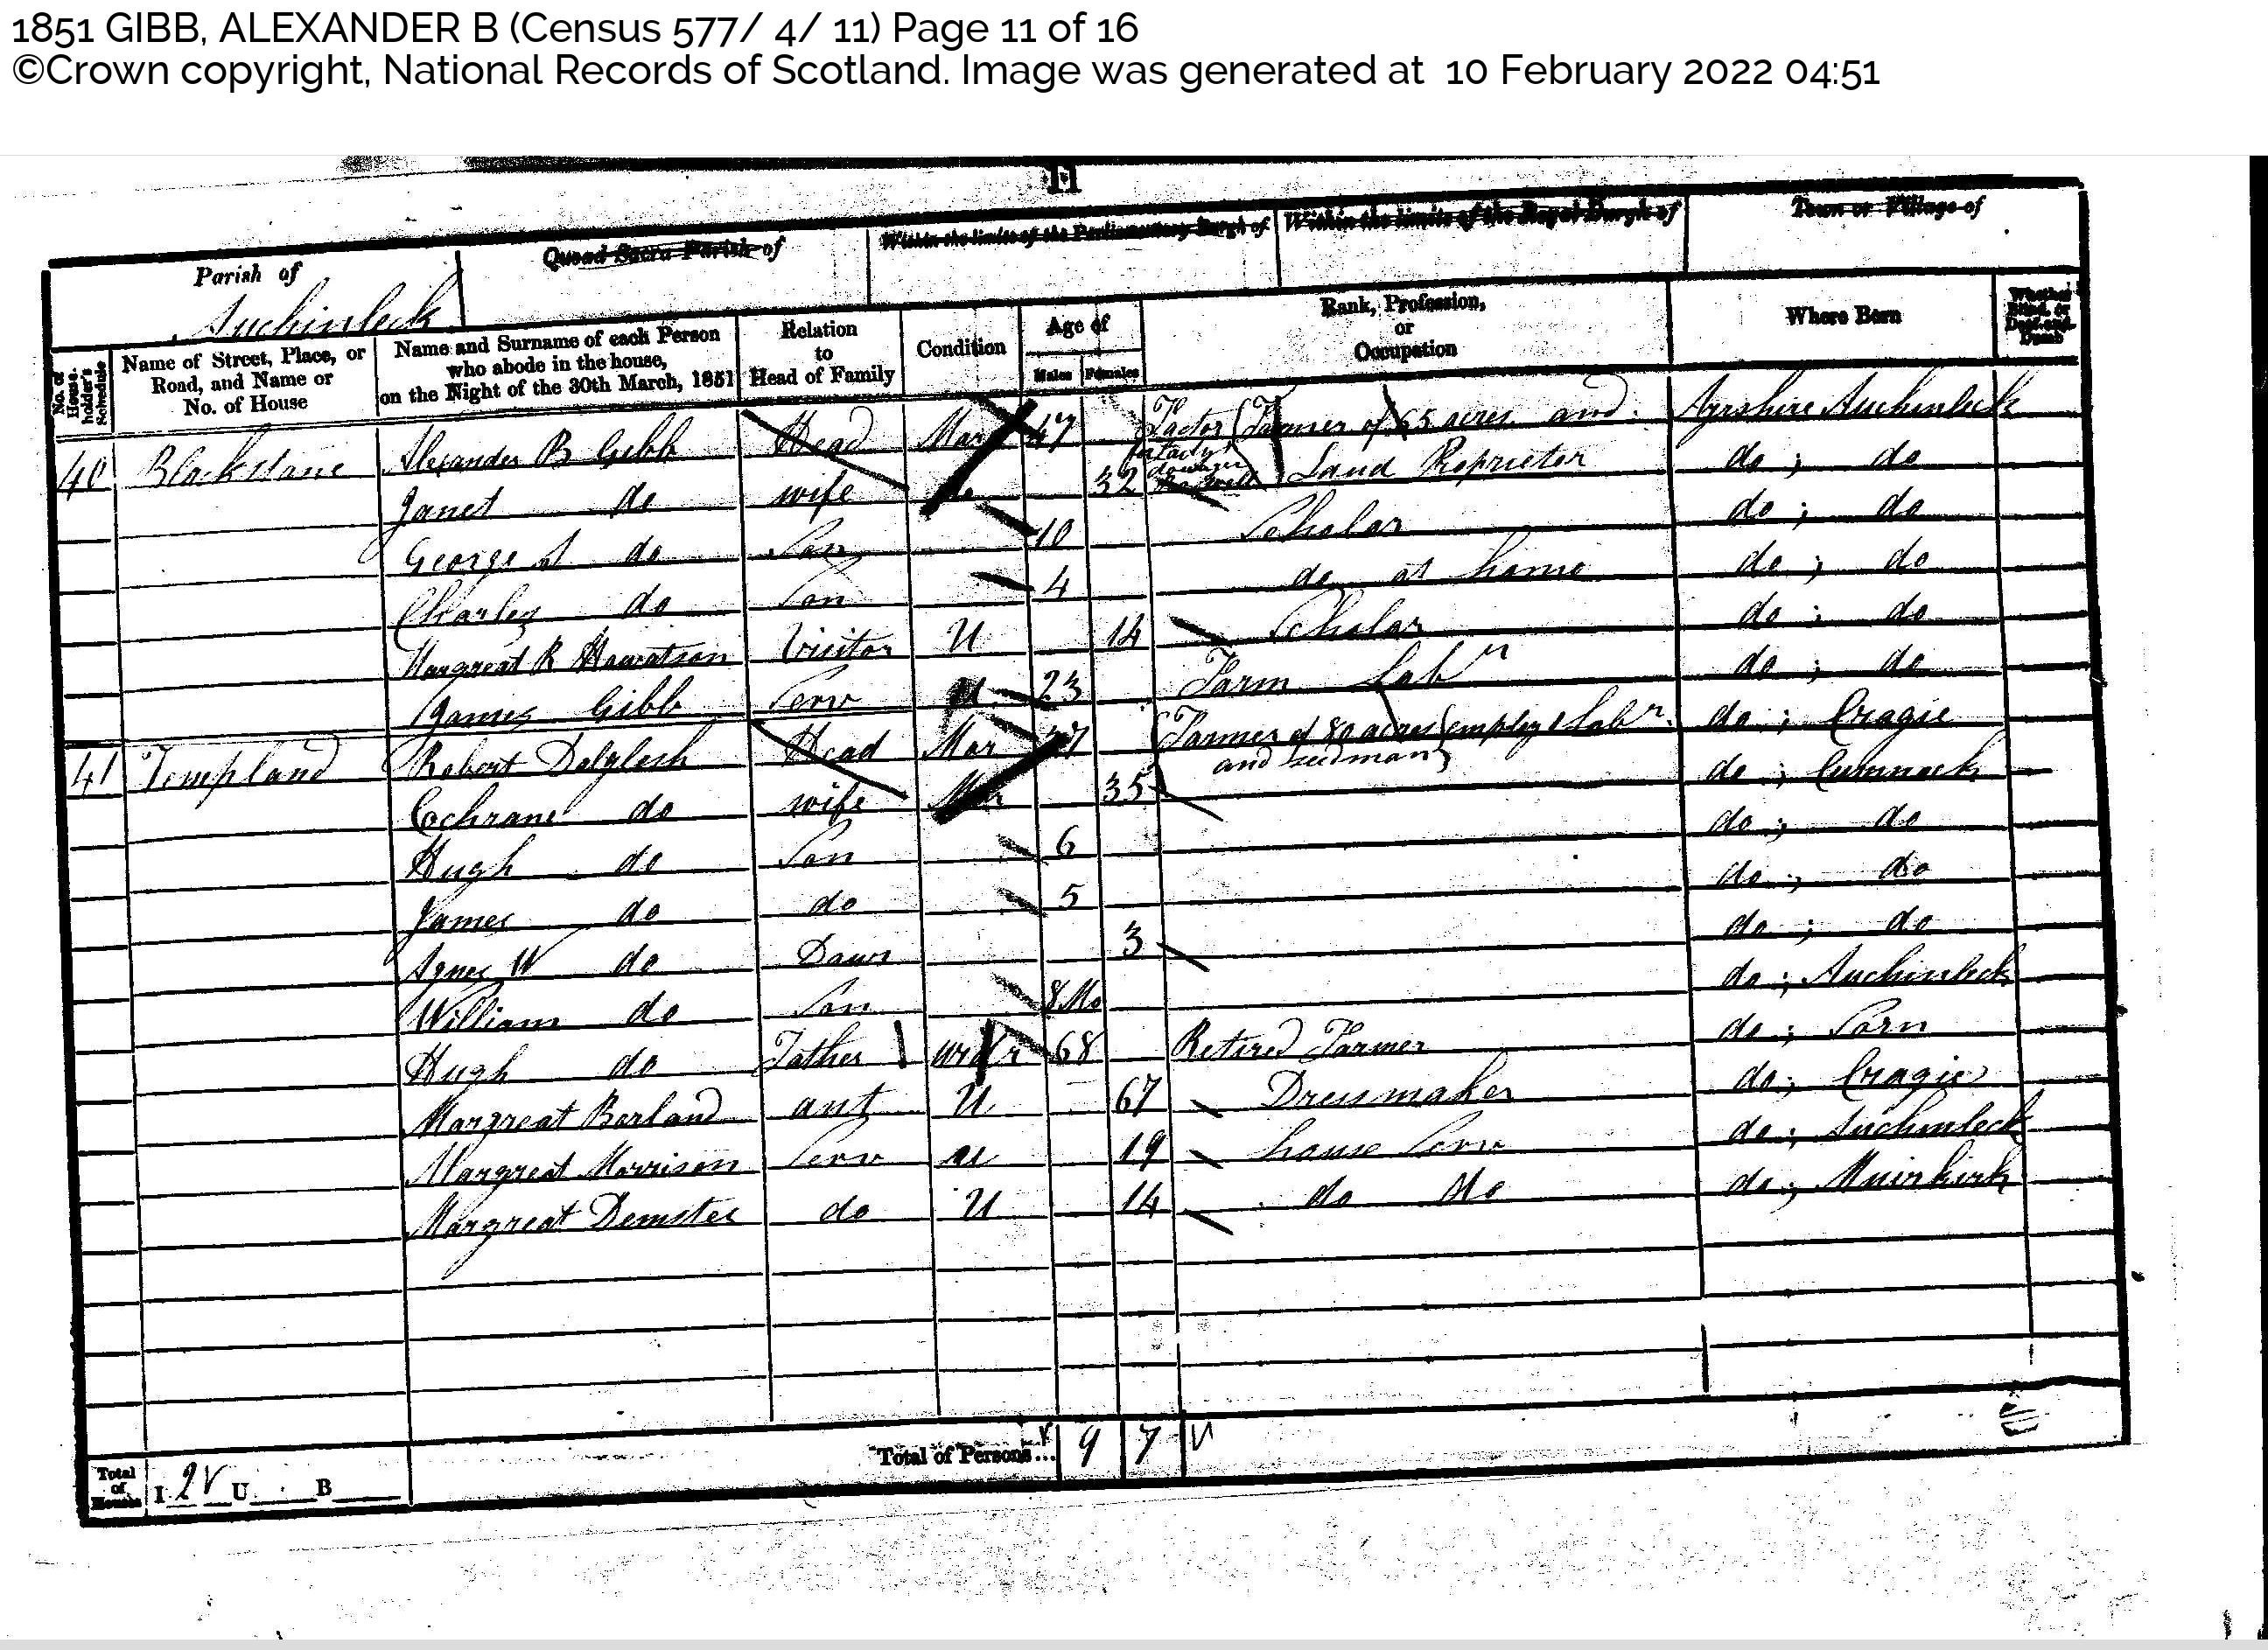 1851 GIBB, ALEXANDER B (Census 577/ 4/ 11) Page 11 of 16
©Crown copyright, National Records of Scotland. Image was generated at 10 February 2022 04:51
11
Parish of Quoad Sacra Parish of Within the limits of the Parliamentary Burgh of Within the limits of the Royal Burgh of Town or Village of
Auchinleck
No. of House-holder's Schedule Name of Street, Place, or Road, and Name or No. of House Name and Surname of each Person who abode in the house, on the Night of the 30th March, 1851 Relation to Head of Family Condition Age of Males Females Rank, Profession, or Occupation Where Born Whether Blind, or Deaf and Dumb
40 Blackstane Alexander B Gibb Head Mar 47 Factor Farmer of 65 acres and Ayrshire Auchinleck
Janet do wife 32 dowager Land Proprietor do ; do
George do Son 10 Scholar do ; do
Charles do Son 4 do at home do ; do
Margreat R Howatson Visitor U 14 Scholar do ; do
James Gibb Serv U 23 Farm Labr do ; do
41 Templand Robert Dalglesh Head Mar 37 Farmer of 80 acres employ Labr do ; Cragie
and seedman
Cochrane do wife Mar 35 do ; Cumnock
Hugh do Son 6 do ; do
James do do 5 do ; do
Agnes W do Dawr 3 do ; do
William do Son 8 Mo do ; Auchinleck
Hugh do Father widr 68 Retired Farmer do ; Sorn
Margreat Borland ant U 67 Dressmaker do ; Cragie
Margreat Morrison Serv U 19 house Serv do ; Auchinleck
Margreat Demster do U 14 do do do ; Muirkirk
Total of Persons... 9 7
Total of Houses I 2 U B